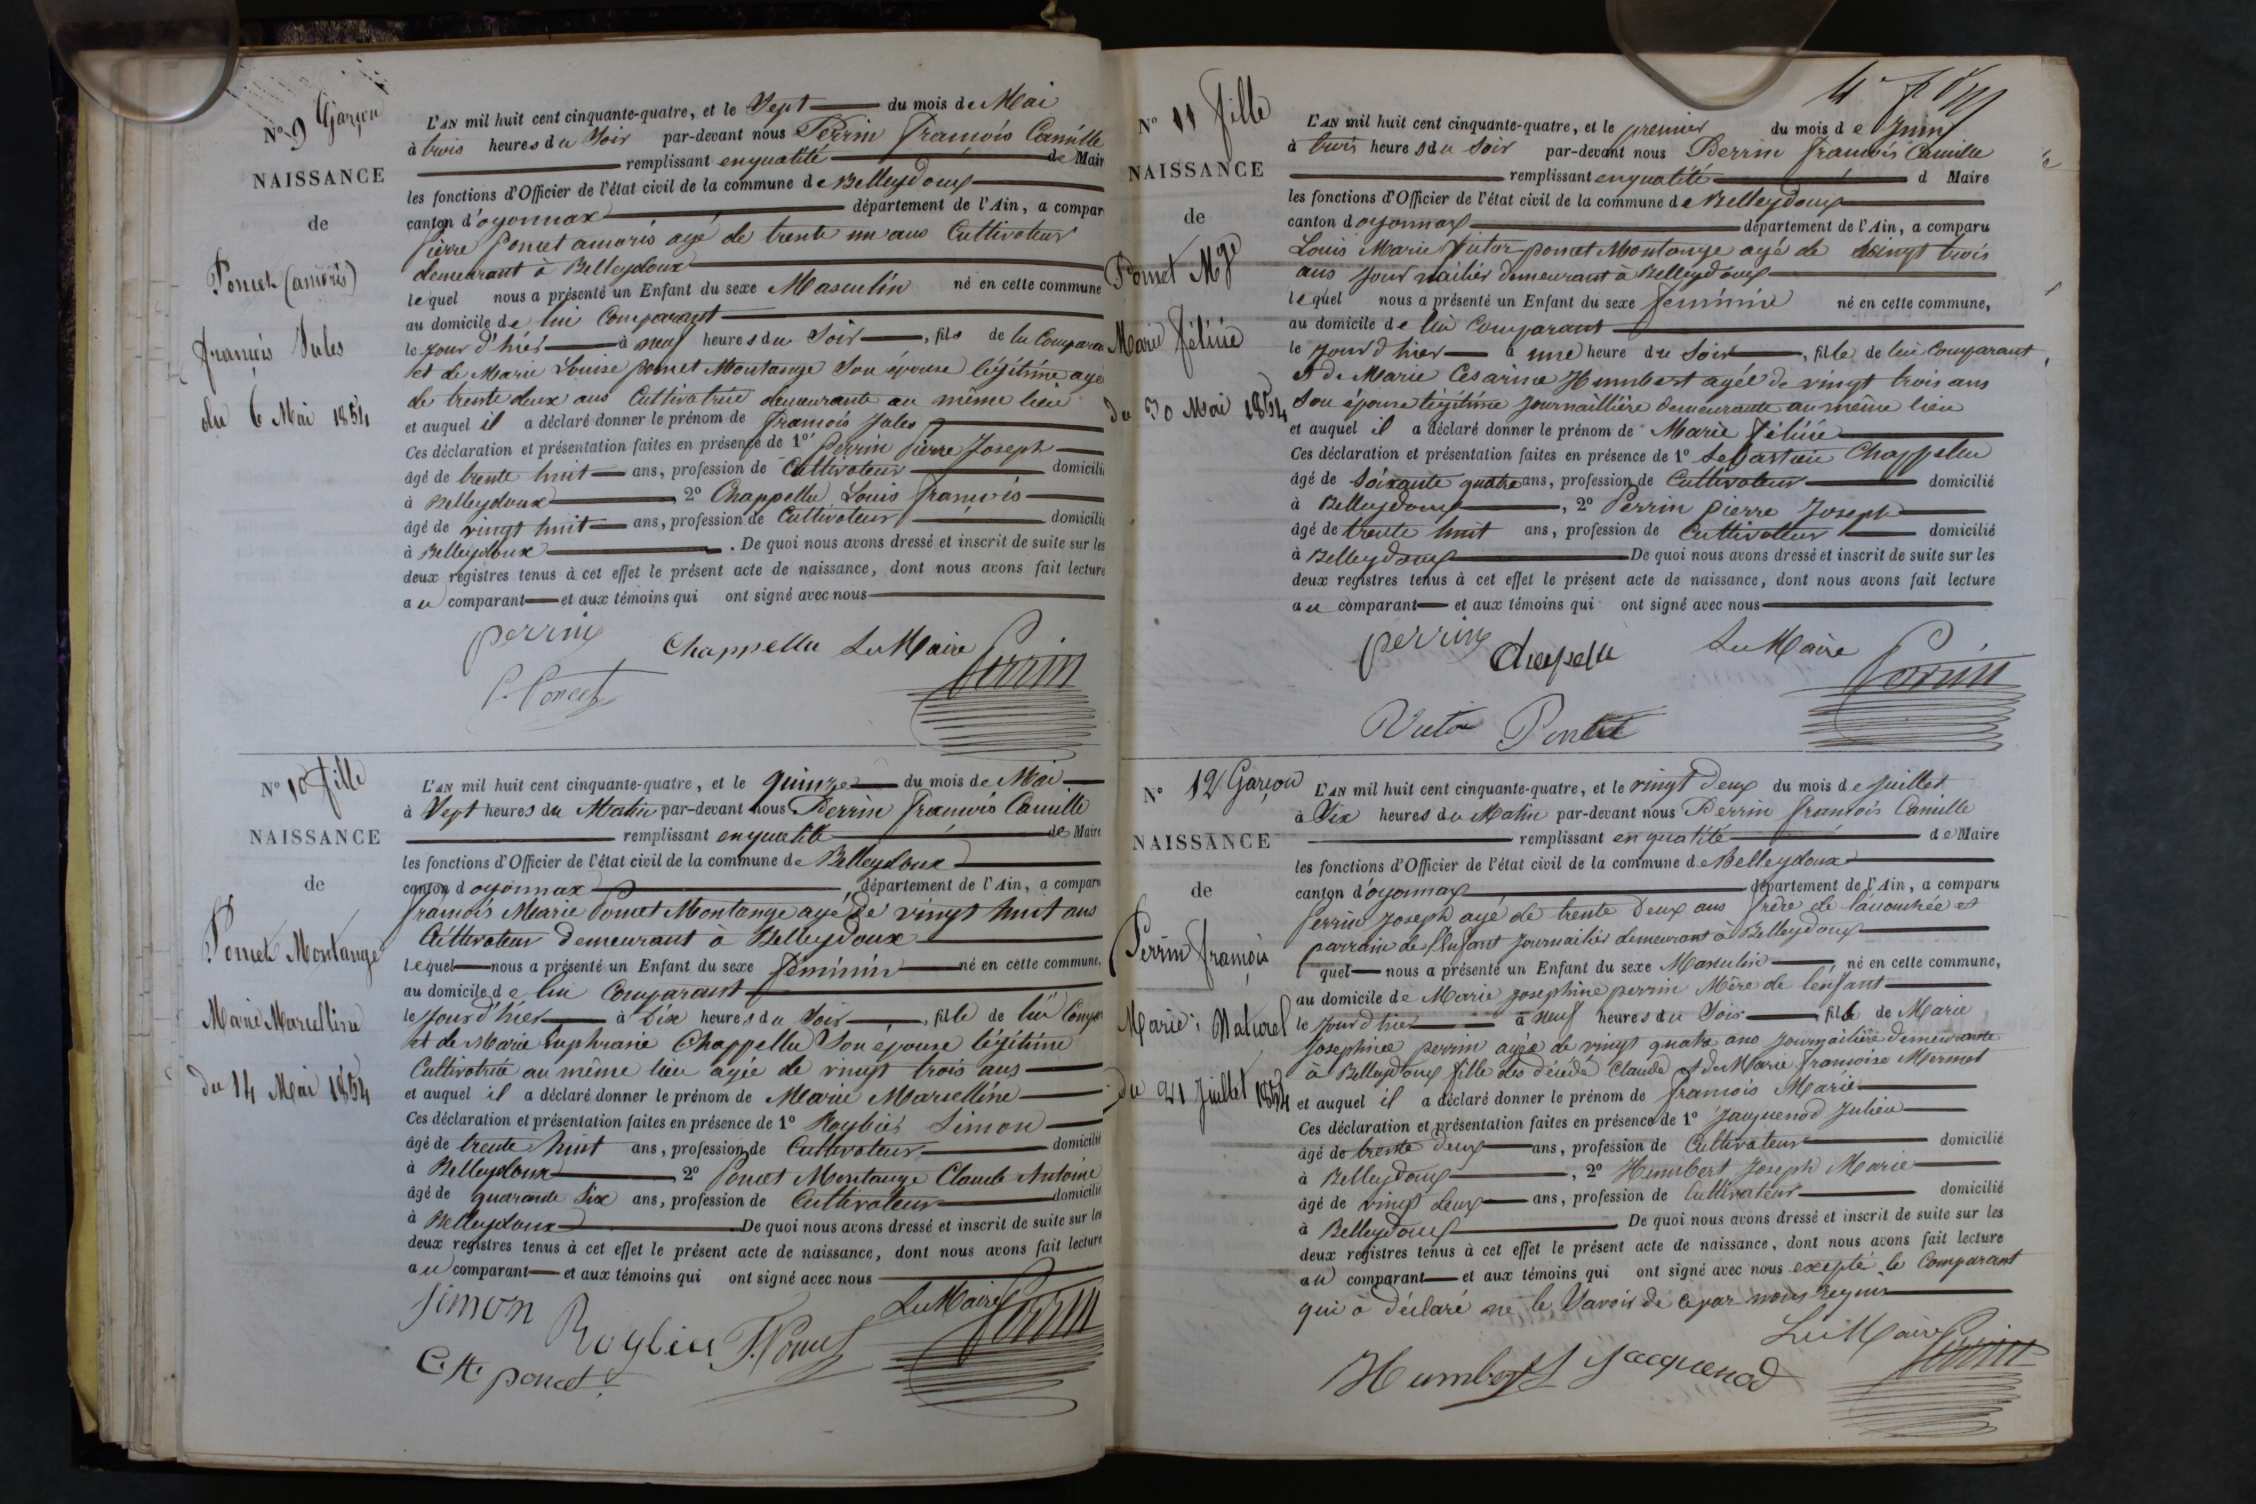 N° 9 Garçon
NAISSANCE
de
Poncet (amoris)
françois Jules
du 6 Mai 1854
L'AN mil huit cent cinquante-quatre, et le Sept du mois de Mai
à trois heures du Soir par-devant nous Perrin françois Camille
remplissant enqualité de Mair
les fonctions d'Officier de l'état civil de la commune de Belleydoux
canton d'oyonnax département de l'Ain, a compar
Pierre Poncet amoris agé de trente un ans Cultivateur
demeurant à Belleydoux
lequel nous a présenté un Enfant du sexe Masculin né en cette commune
au domicile de lui Comparant
le jour d'hier à neuf heures du Soir, fils de lui Compara
et de Marie Louise poncet Montange Son épouse légitime agé
de trente deux ans Cultivatrice demeurante au même lieu
et auquel il a déclaré donner le prénom de françois Jules
Ces déclaration et présentation faites en présence de 1° Perrin Pierre Joseph
âgé de trente huit ans, profession de Cultivateur domicili
à Belleydoux, 2° Chappellu Louis françois
âgé de vingt huit ans, profession de Cultivateur domicilié
à Belleydoux. De quoi nous avons dressé et inscrit de suite sur les
deux registres tenus à cet effet le présent acte de naissance, dont nous avons fait lecture
au comparant et aux témoins qui ont signé avec nous
perrin Chappellu Le Maire
P. Poncet Perrin
N° 10 fille
NAISSANCE
de
Poncet Montange
Marie Marcelline
du 14 Mai 1854
L'AN mil huit cent cinquante-quatre, et le quinze du mois de Mai
à Sept heures du Matin par-devant nous Perrin françois Camille
remplissant enqualité de Maire
les fonctions d'Officier de l'état civil de la commune de Belleydoux
canton d oyonnax, département de l'Ain, a comparu
françois Marie Poncet Montange agé de vingt huit ans
Cultivateur demeurant à Belleydoux
lequel nous a présenté un Enfant du sexe féminin né en cette commune,
au domicile de lui Comparant
le Jour d'hier à Six heures du Soir, fille de lui Compar
et de Marie Euphrasie Chappellu Son épouse légitime
Cultivatrice au même lieu agée de vingt trois ans
et auquel il a déclaré donner le prénom de Marie Marselline
Ces déclaration et présentation faites en présence de 1° Roybier Simon
âgé de trente huit ans, profession de Cultivateur domicilié
à Belleydoux 2° Poncet Montange Claude Antoine
âgé de quarante Six ans, profession de Cultivateur domicilié
à Belleydoux De quoi nous avons dressé et inscrit de suite sur les
deux registres tenus à cet effet le présent acte de naissance, dont nous avons fait lecture
au comparant et aux témoins qui ont signé avec nous
Simon Roybier F. Poncet Le Maire Perrin
C. A. poncet
N° 11 fille
NAISSANCE
de
Poncet Mge
Marie féline
du 30 Mai 1854
L'AN mil huit cent cinquante-quatre, et le premier du mois de Juin
à trois heures du Soir par-devant nous Perrin françois Camille
remplissant enqualité d Maire
les fonctions d'Officier de l'état civil de la commune de Belleydoux
canton d oyonnax département de l'Ain, a comparu
Louis Marie Victor poncet Montange agé de vingt trois
ans Journailier demeurant à Belleydoux
lequel nous a présenté un Enfant du sexe féminin né en cette commune,
au domicile de lui Comparant
le jour d hier à une heure du Soir, fille de lui Comparant
et de Marie Cesarine Humbert agée de vingt trois ans
Son épouse légitime journaillière demeurante au même lieu
et auquel il a déclaré donner le prénom de Marie féline
Ces déclaration et présentation faites en présence de 1° Sebastien Chappellu
âgé de Soixante quatre ans, profession de Cultivateur domicilié
à Belleydoux, 2° Perrin pierre Joseph
âgé de trente huit ans, profession de Cultivateur domicilié
à Belleydoux De quoi nous avons dressé et inscrit de suite sur les
deux registres tenus à cet effet le présent acte de naissance, dont nous avons fait lecture
au comparant et aux témoins qui ont signé avec nous
perrin Chapelu Le Maire Perrin
Victor Poncet
N° 12 Garçon
NAISSANCE
de
Perrin françois
Marie: Naturel
du 21 Juillet 1854
L'AN mil huit cent cinquante-quatre, et le vingt deux du mois de Juillet
à Six heures du Matin par-devant nous Perrin françois Camille
remplissant en qualité de Maire
les fonctions d'Officier de l'état civil de la commune de Belleydoux
canton d'oyonnax département de l'Ain, a comparu
Perrin Joseph agé de trente deux ans frère de l'acouchée et
parrain de l'Enfant Journailier demeurant à Belleydoux
l quel nous a présenté un Enfant du sexe Masculin, né en cette commune,
au domicile de Marie Josephine perrin Mère de l'enfant
le jour d hier à neuf heures du Soir, fils de Marie
Josephinee perrin agée de vingt quatre ans journailière demeurante
à Belleydoux fille des décédé Claude et de Marie francoise Mermet
et auquel il a déclaré donner le prénom de francois Marie
Ces déclaration et présentation faites en présence de 1° Jacquenod Julien
âgé de trente deux ans, profession de Cultivateur domicilié
à Belleydoux, 2° Humbert Joseph Marie
âgé de vingt deux ans, profession de Cultivateur domicilié
à Belleydoux De quoi nous avons dressé et inscrit de suite sur les
deux registres tenus à cet effet le présent acte de naissance, dont nous avons fait lecture
au comparant et aux témoins qui ont signé avec nous excepté le Comparant
qui à déclaré ne le Savoir de ce par nous requis
Le Maire Perrin
Humbert J Jacquenod